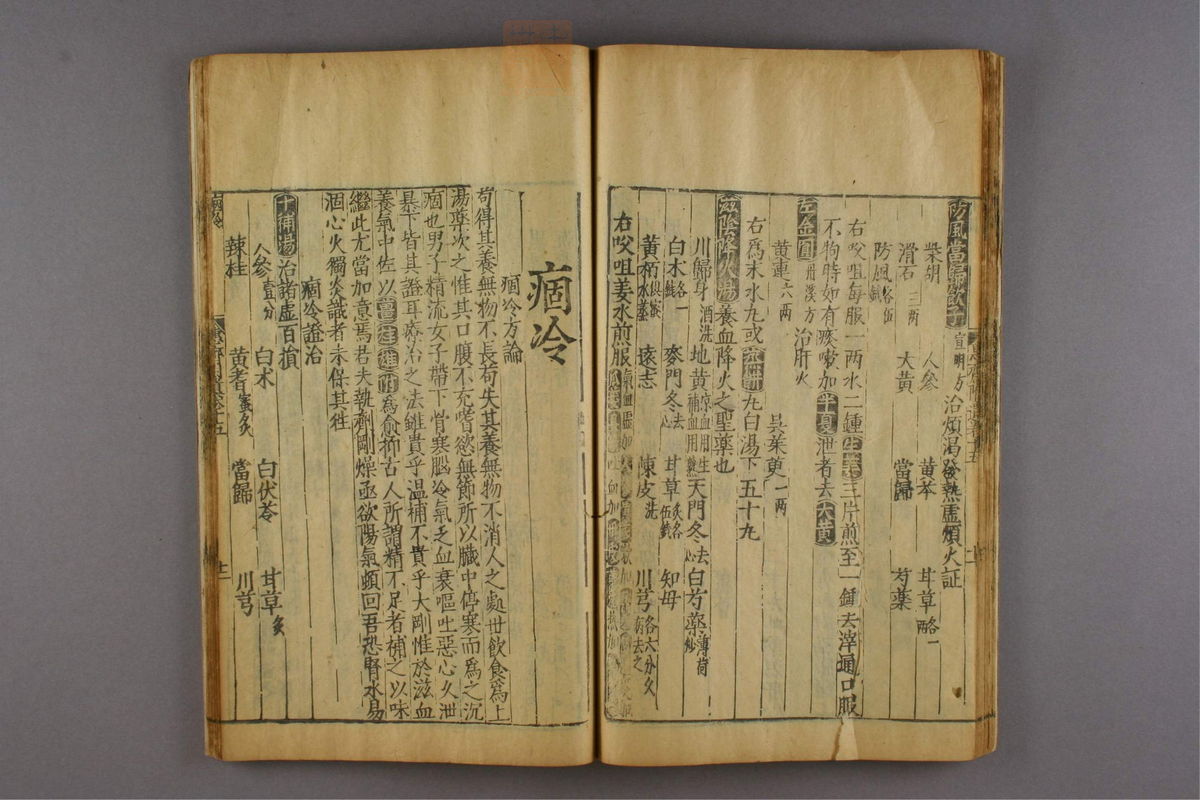 防風當歸飲子宣明方治煩渴發熱虛煩火証
柴胡 人參 黃芩 甘草略一兩
滑石三兩 大黃 當歸 芍藥
防風各伍錢
右㕮咀每服一两水二鍾生姜三片煎至一鍾去滓通口服
不狗時如有痰嗽加半夏泄者去大黃
左金圓丹溪方治肝火
黃連六两 吳茱萸一两
右爲末水丸或蒸餅丸白湯下五十丸
滋陰降火湯養血降火之聖藥也
川歸身酒洗 地黃凉血用生補血用熟 天門冬去心 白芍藥薄荷炒
白术各一錢 麥門冬去心 甘草炙各伍錢 知母
黃栢水蜜 遠志 陳皮洗 川芎各六分久病去之
右㕮咀姜水煎服
痼冷
痼冷方論
苟得其養無物不長苟失其養無物不消人之處世飲食爲上
湯藥次之惟其口腹不充嗜慾無節所以臟中停寒而爲之沉
痼也男子精流女子帶下骨寒腦冷氣乏血衰嘔吐惡心久泄
暴下皆其證耳療治之法雖貴乎温補不貴乎大剛惟於滋血
養氣中佐以薑桂雄附爲愈抑古人所謂精不足者補之以味
繼此尤當加意焉君夫執劑剛燥亟欲陽氣頓回吾恐腎水易
涸心火獨炎識者未保其徃
痼冷證治
十補湯治諸虛百損
人參壹分 白术 白伏苓 甘草炙
辣桂 黃耆蜜炙 當歸 川芎
痼冷